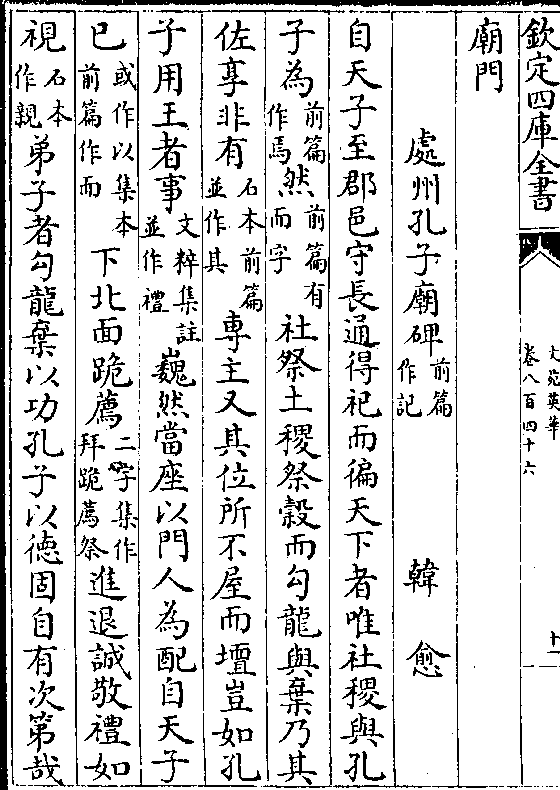 欽定四庫全書
文苑英華
卷八百四十六
十
廟門
處州孔子廟碑前篇作記 韓愈
自天子至郡邑守長通得祀而徧天下者唯社稷與孔
子為前篇作焉然前篇有而字社祭土稷祭穀而勾龍與棄乃其
佐享非有石本前篇並作其專主又其位所不屋而壇豈如孔
子用王者事文粹集註並作禮巍然當座以門人為配自天子
已或作以集本前篇作而下北面跪薦二字集作拜跪薦祭進退誠敬禮如
視石本作親弟子者勾龍棄以功孔子以德固自有次第哉